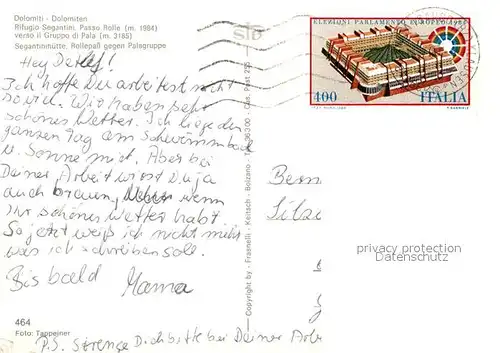 Dolomiti - Dolomiten
Rifugio Segantini, Passo Rolle (m. 1984)
verso il Gruppo di Pala (m. 3185)
Segantinihütte, Rollepaß gegen Palagruppe
Hey Detlef!
Ich hoffe Du arbeitest nicht
so viel. Wir haben sehr
schönes Wetter. Ich liege den
ganzen Tag am Schwimmbad
u. Sonne mich. Aber bei
Deiner Arbeit wirst Du ja
auch braun, wenn
Ihr schönes Wetter habt
So jetzt weiß ich nicht mehr
was ich schreiben soll.
Bis bald Mama
464
Foto: Tappeiner
P.S. Strenge Dich bitte bei Deiner Arbe
Copyright by - Frasnelli - Keitsch - Bolzano - 36300 - Cas. Post 255
ELEZIONI PARLAMENTO EUROPEO 1984
400 ITALIA
Bern
privacy protection
Datenschutz